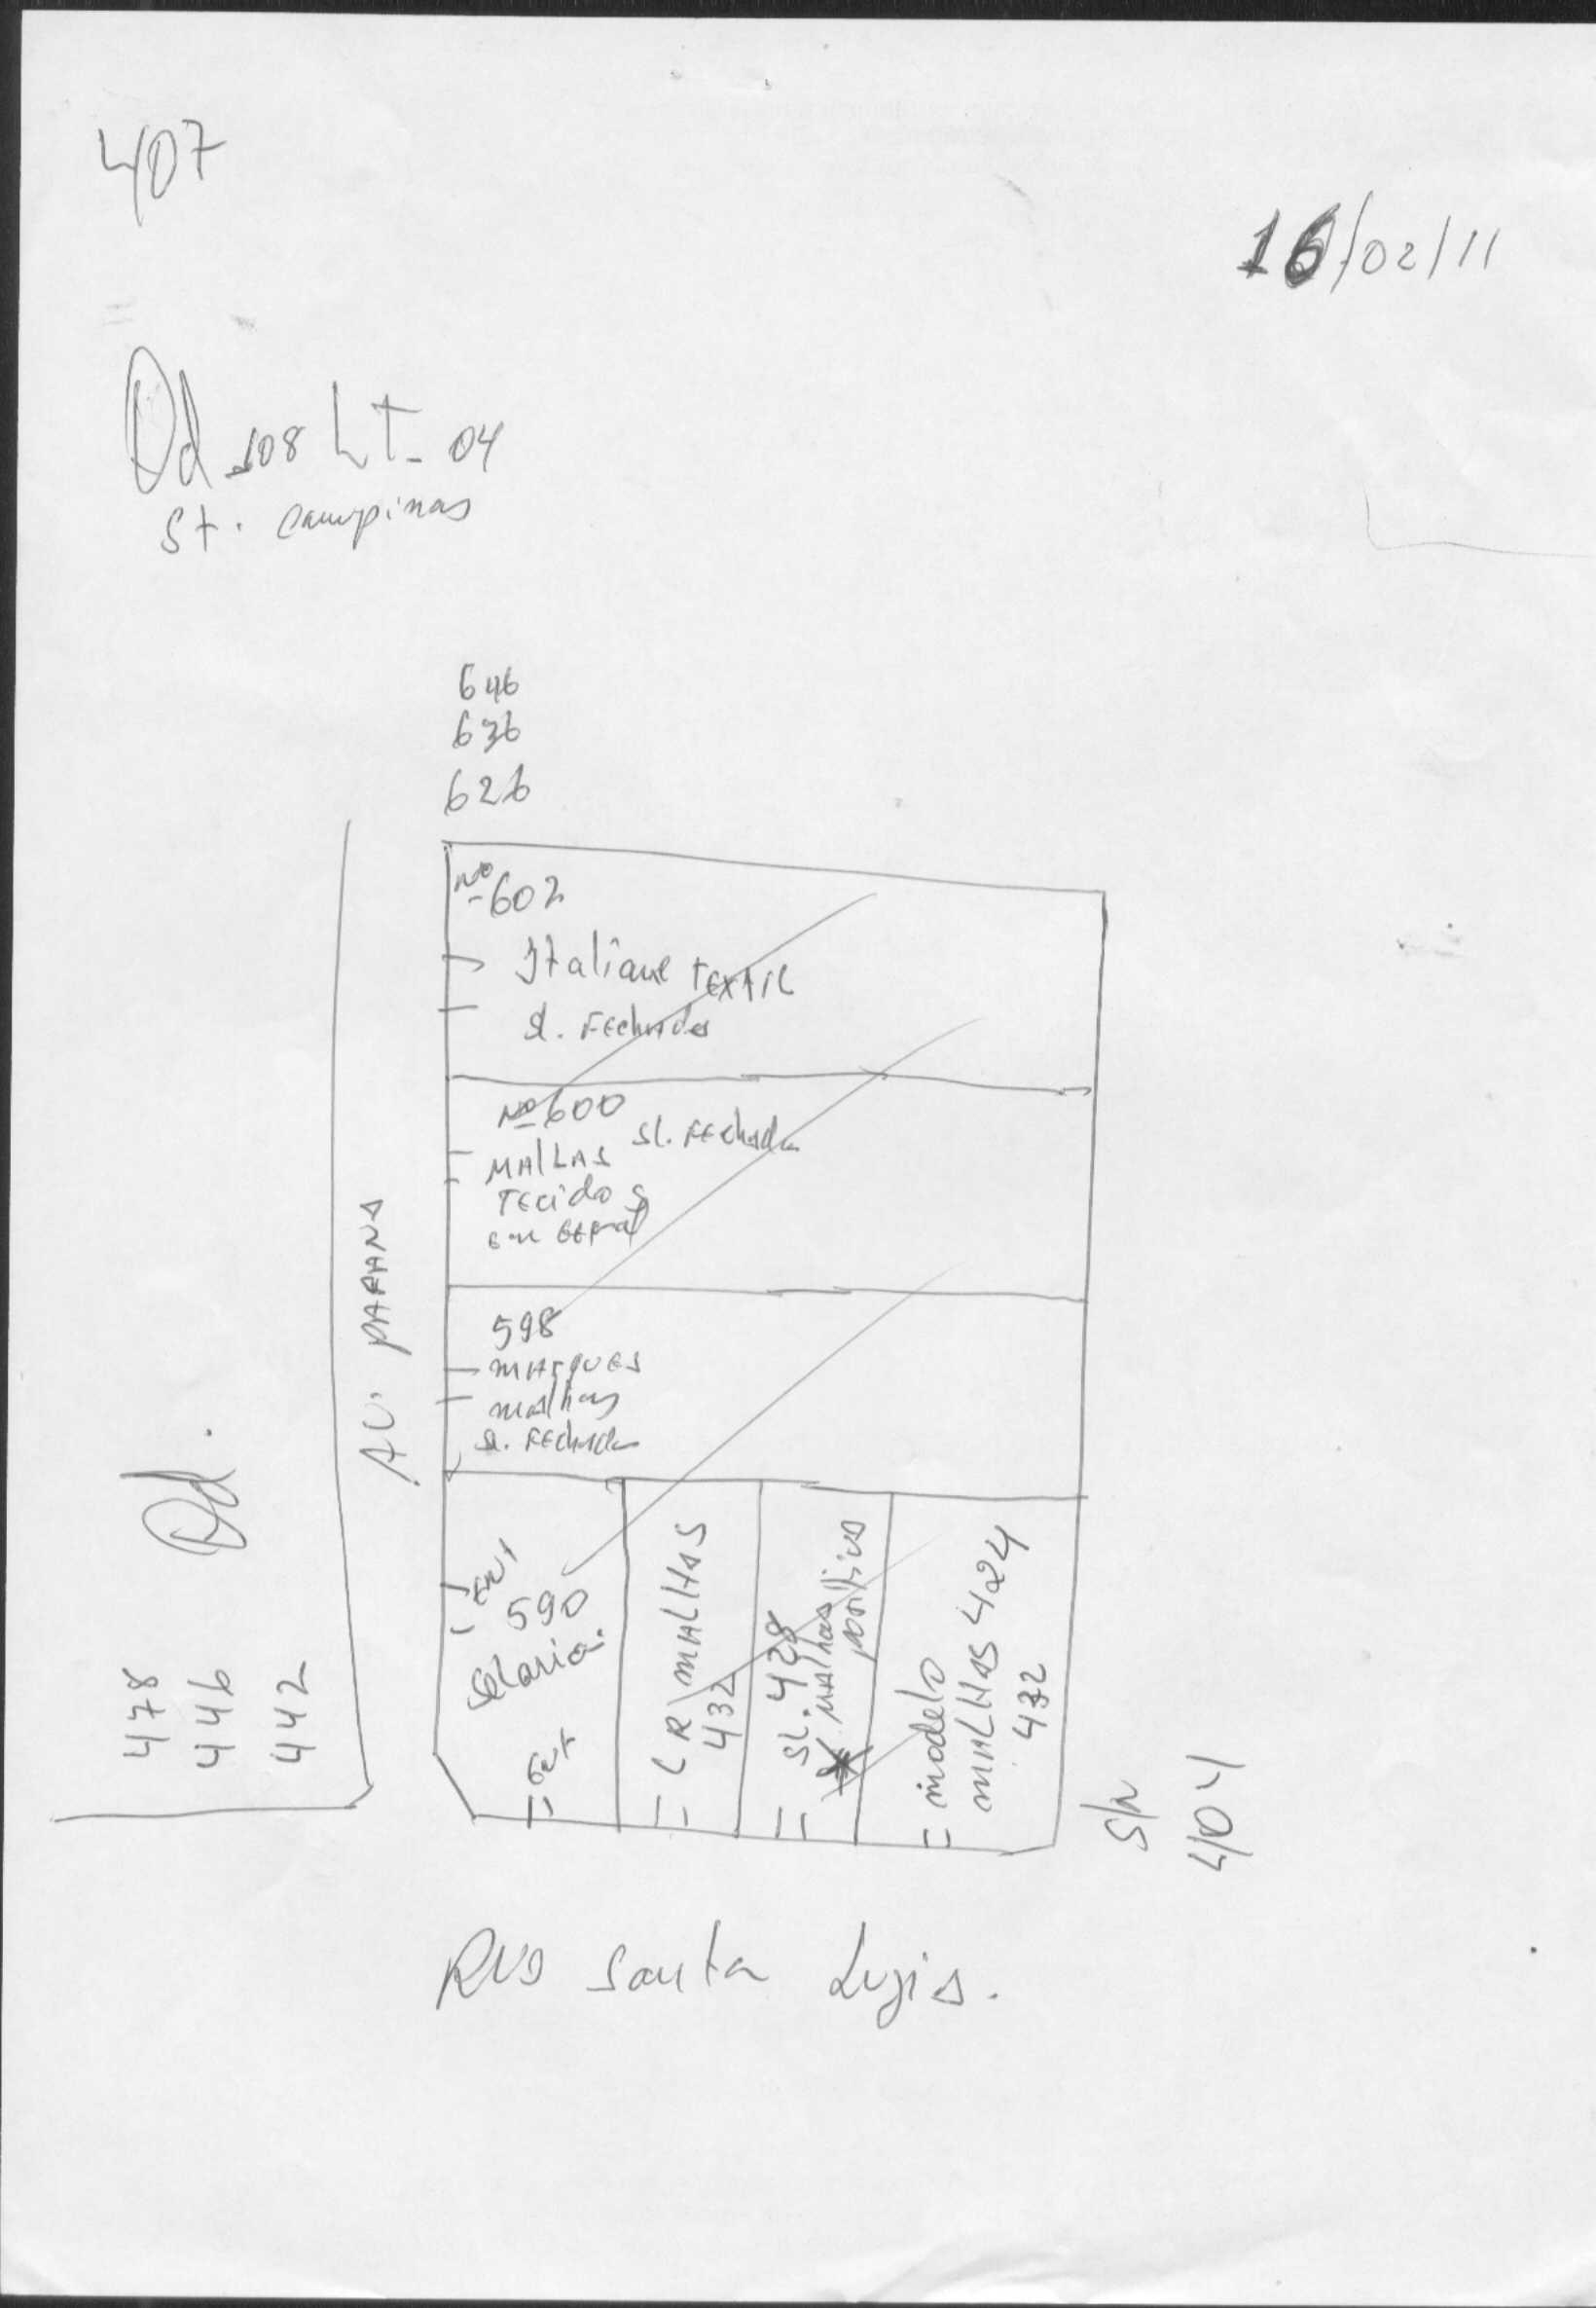 407
16/02/11
Qd 108 LT- 04
St. Campinas
646
636
626
Nº 602
Italiane TEXTIL
Sl. FEchada
Nº 600
MALLAS Sl. FEchada
TECidos
Em GERAl
598
MARQUES
malhas
Sl. FEchada
AV. PARANA
Qd.
478
446
442
ENT
590
Selaria.
ENT
LR MALHAS
432
SL. 428
MAlhas
positiva
modelo
MALHAS 424
432
S/N
404
RUA Santa Luzia.